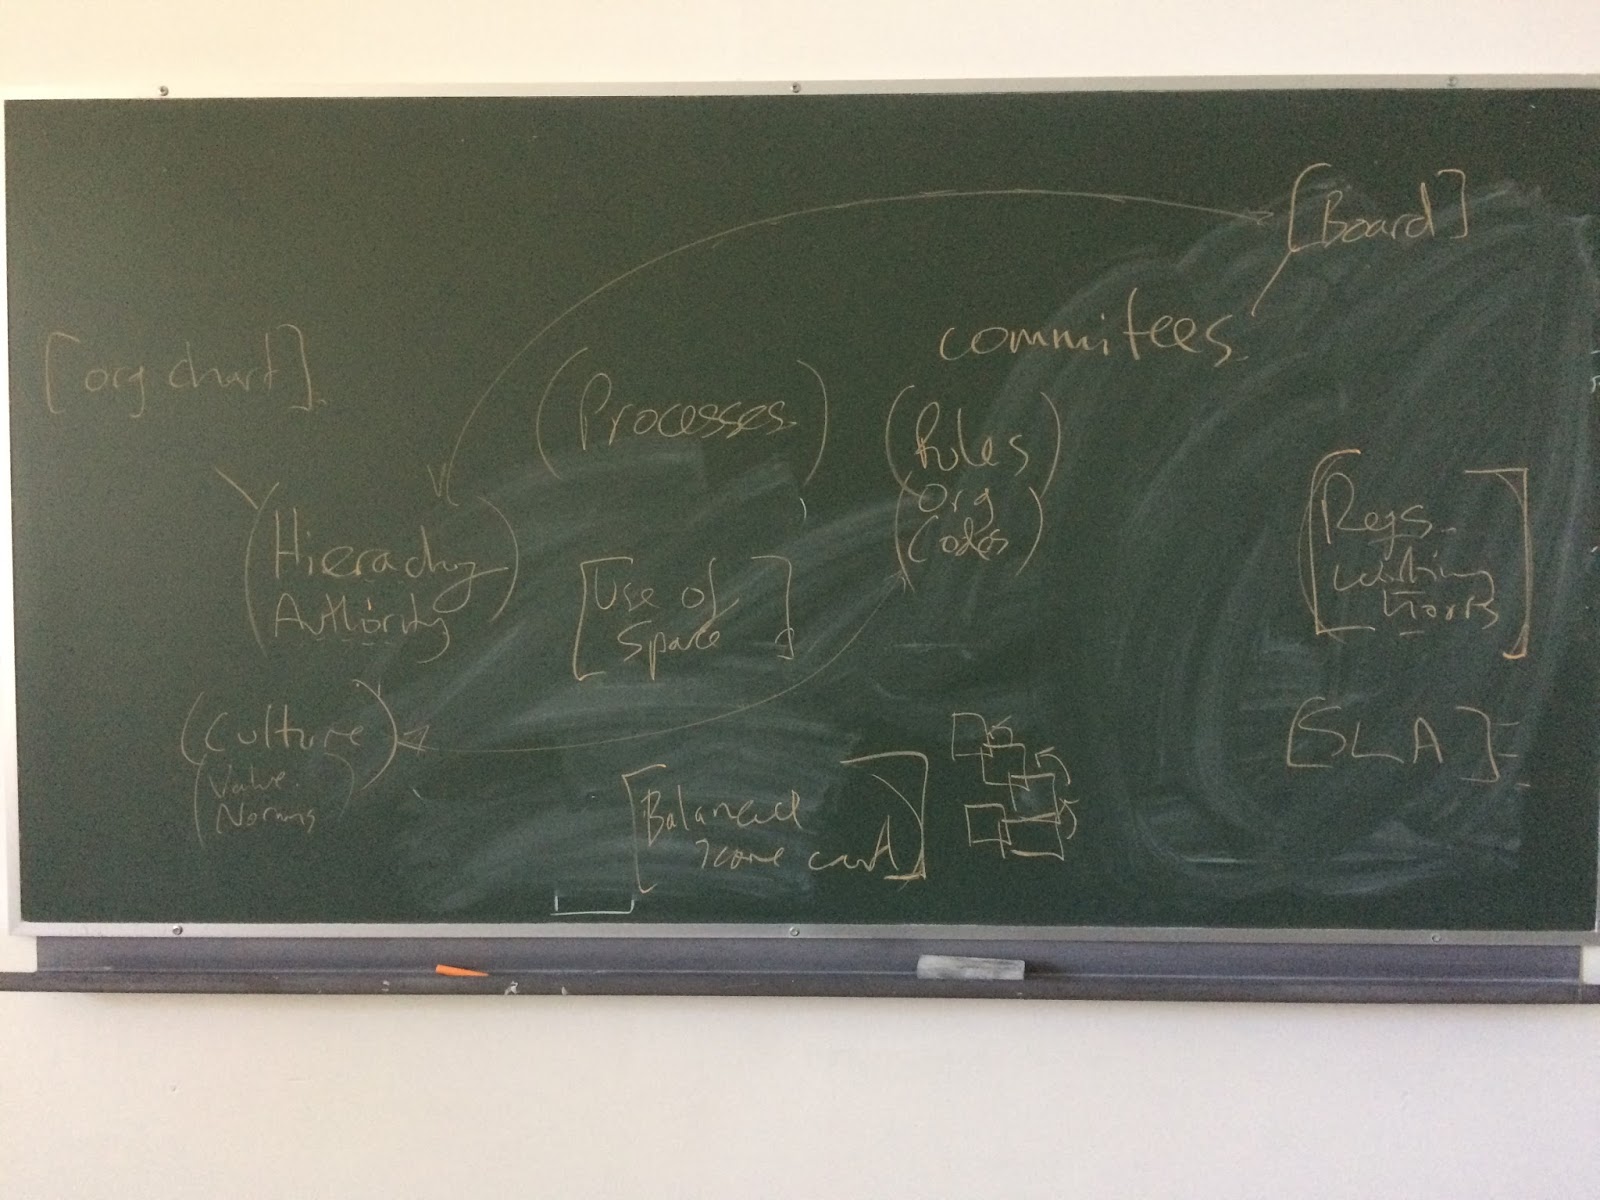 [Board]
commitees
[org chart]
(Processes)
(Rules
Org
Codes)
(Hierachy
Authority)
[Use of
Space]
[Regs.
working
Hours]
(Culture)
(Value.
Norms)
[SLA]
[Balanced
score card]